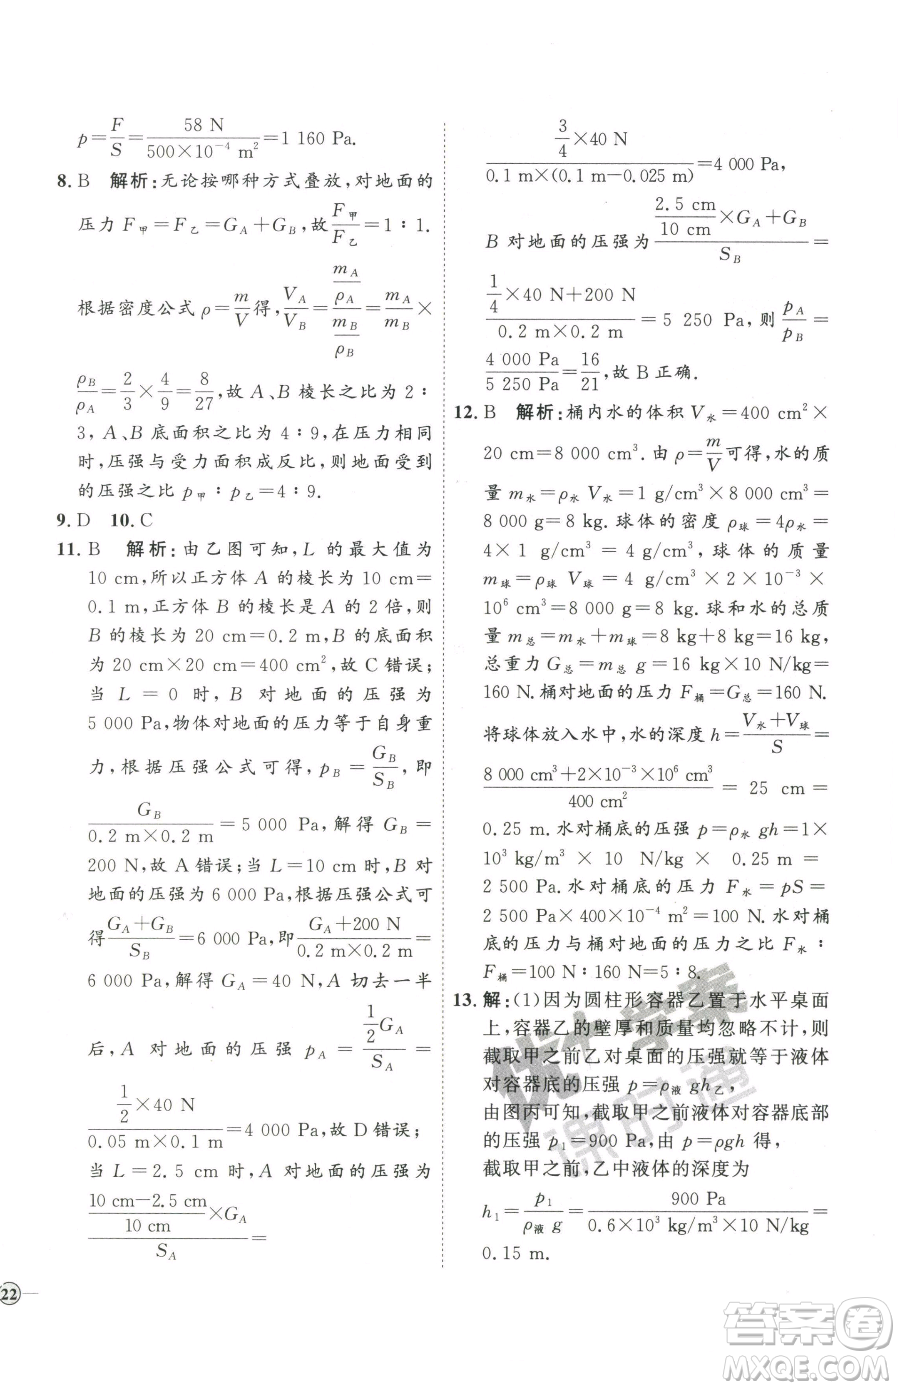 p=F/S=58 N/(500×10⁻⁴ m²)=1 160 Pa.
8. B 解析:无论按哪种方式叠放,对地面的
压力 F甲=F乙=G_A+G_B,故 F甲/F乙=1∶1.
根据密度公式 ρ=m/V 得,V_A/V_B=(m_A/ρ_A)/(m_B/ρ_B)=m_A/m_B×
ρ_B/ρ_A=2/3×4/9=8/27,故 A、B 棱长之比为 2∶
3,A、B 底面积之比为 4∶9,在压力相同
时,压强与受力面积成反比,则地面受到
的压强之比 p甲∶p乙=4∶9.
9. D 10. C
11. B 解析:由乙图可知,L 的最大值为
10 cm,所以正方体 A 的棱长为 10 cm=
0.1 m,正方体 B 的棱长为 A 的 2 倍,则
B 的棱长为 20 cm=0.2 m,B 的底面积
为 20 cm×20 cm=400 cm²,故 C 错误;
当 L=0 时,B 对地面的压强为
5 000 Pa,物体对地面的压力等于自身重
力,根据压强公式可得,p_B=G_B/S_B,即
G_B/(0.2 m×0.2 m)=5 000 Pa,解得 G_B=
200 N,故 A 错误;当 L=10 cm 时,B 对
地面的压强为 6 000 Pa,根据压强公式可
得(G_A+G_B)/S_B=6 000 Pa,即(G_A+200 N)/(0.2 m×0.2 m)=
6 000 Pa,解得 G_A=40 N,A 切去一半
后,A 对地面的压强 p_A=(1/2 G_A)/S_A=
(1/2×40 N)/(0.05 m×0.1 m)=4 000 Pa,故 D 错误;
当 L=2.5 cm 时,A 对地面的压强为
((10 cm-2.5 cm)/10 cm×G_A)/S_A=
(3/4×40 N)/(0.1 m×(0.1 m-0.025 m))=4 000 Pa,
B 对地面的压强为(2.5 cm/10 cm×G_A+G_B)/S_B=
(1/4×40 N+200 N)/(0.2 m×0.2 m)=5 250 Pa,则 p_A/p_B=
4 000 Pa/5 250 Pa=16/21,故 B 正确.
12. B 解析:桶内水的体积 V水=400 cm²×
20 cm=8 000 cm³.由 ρ=m/V 可得,水的质
量 m水=ρ水 V水=1 g/cm³×8 000 cm³=
8 000 g=8 kg.球体的密度 ρ球=4ρ水=
4×1 g/cm³=4 g/cm³,球体的质量
m球=ρ球 V球=4 g/cm³×2×10⁻³×
10⁶ cm³=8 000 g=8 kg.球和水的总质
量 m总=m水+m球=8 kg+8 kg=16 kg,
总重力 G总=m总 g=16 kg×10 N/kg=
160 N.桶对地面的压力 F桶=G总=160 N.
将球体放入水中,水的深度 h=(V水+V球)/S=
(8 000 cm³+2×10⁻³×10⁶ cm³)/400 cm²=25 cm=
0.25 m.水对桶底的压强 p=ρ水 gh=1×
10³ kg/m³×10 N/kg×0.25 m=
2 500 Pa.水对桶底的压力 F水=pS=
2 500 Pa×400×10⁻⁴ m²=100 N.水对桶
底的压力与桶对地面的压力之比 F水∶
F桶=100 N∶160 N=5∶8.
13. 解:(1)因为圆柱形容器乙置于水平桌面
上,容器乙的壁厚和质量均忽略不计,则
截取甲之前乙对桌面的压强就等于液体
对容器底的压强 p=ρ液 gh乙,
由图丙可知,截取甲之前液体对容器底部
的压强 p₁=900 Pa,故由 p=ρgh 得,
截取甲之前,乙中液体的深度为
h₁=p₁/(ρ液 g)=900 Pa/(0.6×10³ kg/m³×10 N/kg)=
0.15 m.
22
优+学案
课时通
答案圈
MXQE.COM